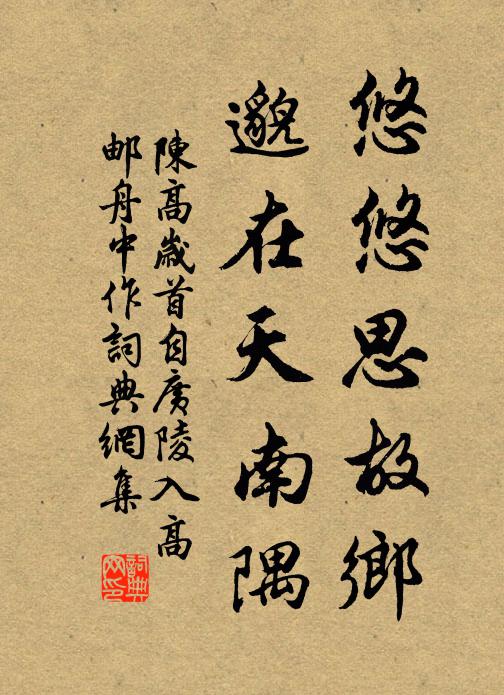 悠悠思故鄉
邈在天南隅
陳高歲首自廣陵入高
邮舟中作詞典網集
詞典网印